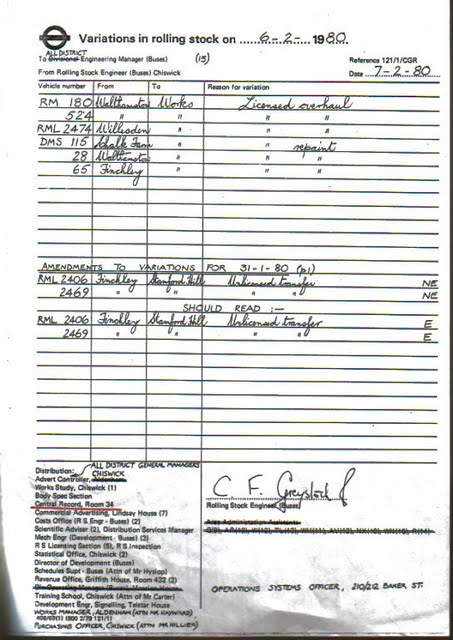 Variations in rolling stock on ..... 6-2- ..... 1980
ALL DISTRICT
To Divisional Engineering Manager (Buses) (15) Reference 121/1/CGR
From Rolling Stock Engineer (Buses) Chiswick Date 7-2-80
Vehicle number From To Reason for variation
RM 180 Walthamstow Works Licensed overhaul
524 " " " "
RML 2474 Willesden " " "
DMS 115 Chalk Farm " " repaint
28 Walthamstow " " "
65 Finchley " " "
AMENDMENTS TO VARIATIONS FOR 31-1-80 (p1)
RML 2406 Finchley Stamford Hill Unlicensed transfer NE
2469 " " " " NE
SHOULD READ :—
RML 2406 Finchley Stamford Hill Unlicensed transfer E
2469 " " " " E
Distribution: ALL DISTRICT GENERAL MANAGERS
CHISWICK
Advert Controller, Aldenham
Works Study, Chiswick (1)
Body Spec Section
Central Record, Room 34
Commercial Advertising, Lindsay House (7)
Costs Office (R S Engr - Buses) (2)
Scientific Adviser (2), Distribution Services Manager
Mech Engr (Development - Buses)
R S Licensing Section (5), R S Inspection
Statistical Office, Chiswick (2)
Director of Development (Buses)
Schedules Supt - Buses (Attn of Mr Hyslop)
Revenue Office, Griffith House, Room 432 (2)
Training School, Chiswick (Attn of Mr Carter)
Development Engr, Signalling, Telstar House
WORKS MANAGER, ALDENHAM (ATTN MR HAYWARD)
PURCHASING OFFICER, CHISWICK (ATTN MR HILLIER)
C. F. Greystock
Rolling Stock Engineer (Buses)
Area Administration Assistants
OPERATIONS SYSTEMS OFFICER, 210/212 BAKER ST.